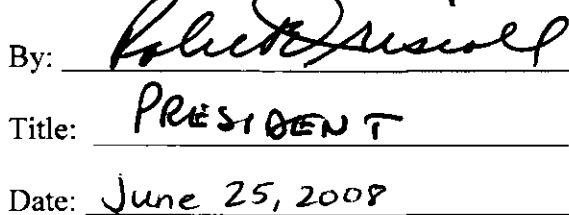 By: Robert Driscoll
Title: PRESIDENT
Date: June 25, 2008